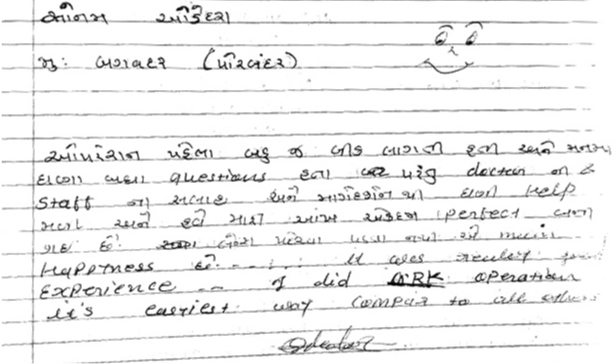 સોનમ ઓડેદરા
મુ: બગવદર (પોરબંદર)
ઓપરેશન પહેલા બહુ જ બીક લાગતી હતી અને મનમાં
ઘણા બધા questions હતા પરંતુ doctor ની &
Staff ના સલાહ અને માર્ગદર્શન થી ઘણી Help
મળી અને હવે મારી આંખ એકદમ perfect બની
ગઈ છે. પહેરવા પડતા નથી એ
Happtness છે It was really good
Experience -- I did ARK operation
It's easriest way compar to all others